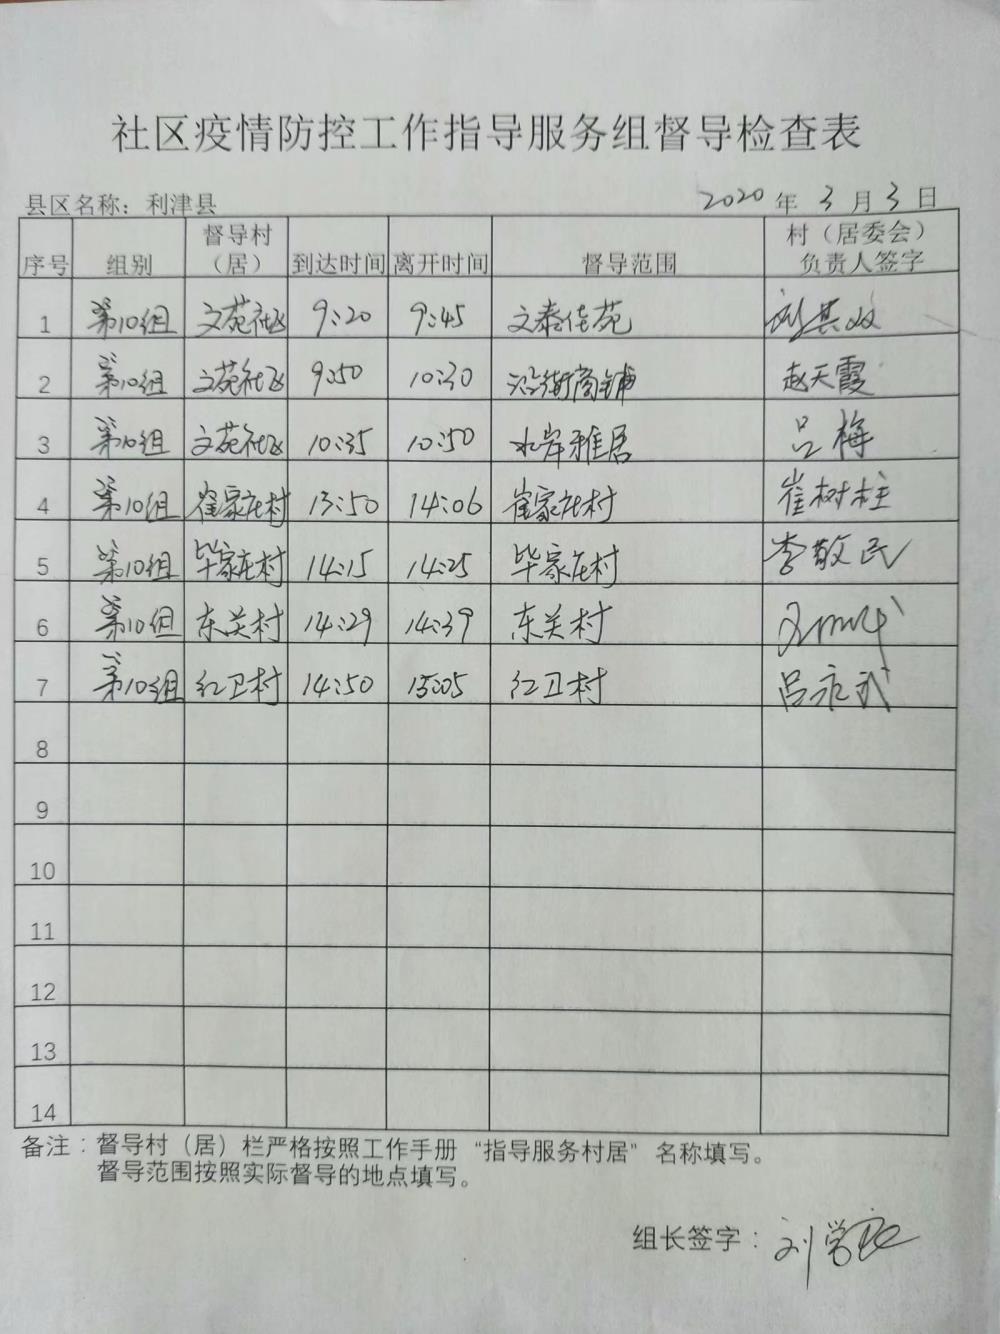 社区疫情防控工作指导服务组督导检查表
县区名称：利津县 2020年3月3日
序号 组别 督导村（居） 到达时间 离开时间 督导范围 村（居委会）负责人签字
1 第10组 文苑社区 9:20 9:45 文泰佳苑
2 第10组 文苑社区 9:50 10:30 沿街商铺 赵天霞
3 第10组 文苑社区 10:35 10:50 水岸雅居 吕梅
4 第10组 崔家庄村 13:50 14:06 崔家庄村 崔树柱
5 第10组 毕家庄村 14:15 14:25 毕家庄村 李敬民
6 第10组 东关村 14:29 14:39 东关村
7 第10组 红卫村 14:50 15:05 红卫村 吕永武
8
9
10
11
12
13
14
备注：督导村（居）栏严格按照工作手册“指导服务村居”名称填写。
督导范围按照实际督导的地点填写。
组长签字：刘学